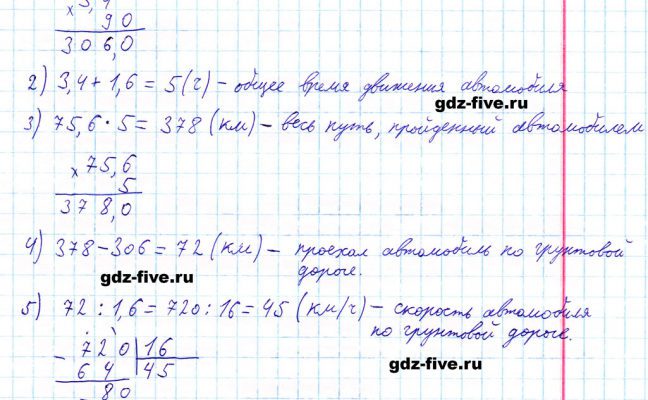 × 3,4
90
306,0
2) 3,4 + 1,6 = 5 (ч) – общее время движения автомобиля
gdz-five.ru
3) 75,6 · 5 = 378 (км) – весь путь, пройденный автомобилем
× 75,6
5
378,0
4) 378 – 306 = 72 (км) – проехал автомобиль по грунтовой
дороге.
gdz-five.ru
5) 72 : 1,6 = 720 : 16 = 45 (км/ч) – скорость автомобиля
по грунтовой дороге.
– 720 | 16
64 | 45
– 80
gdz-five.ru